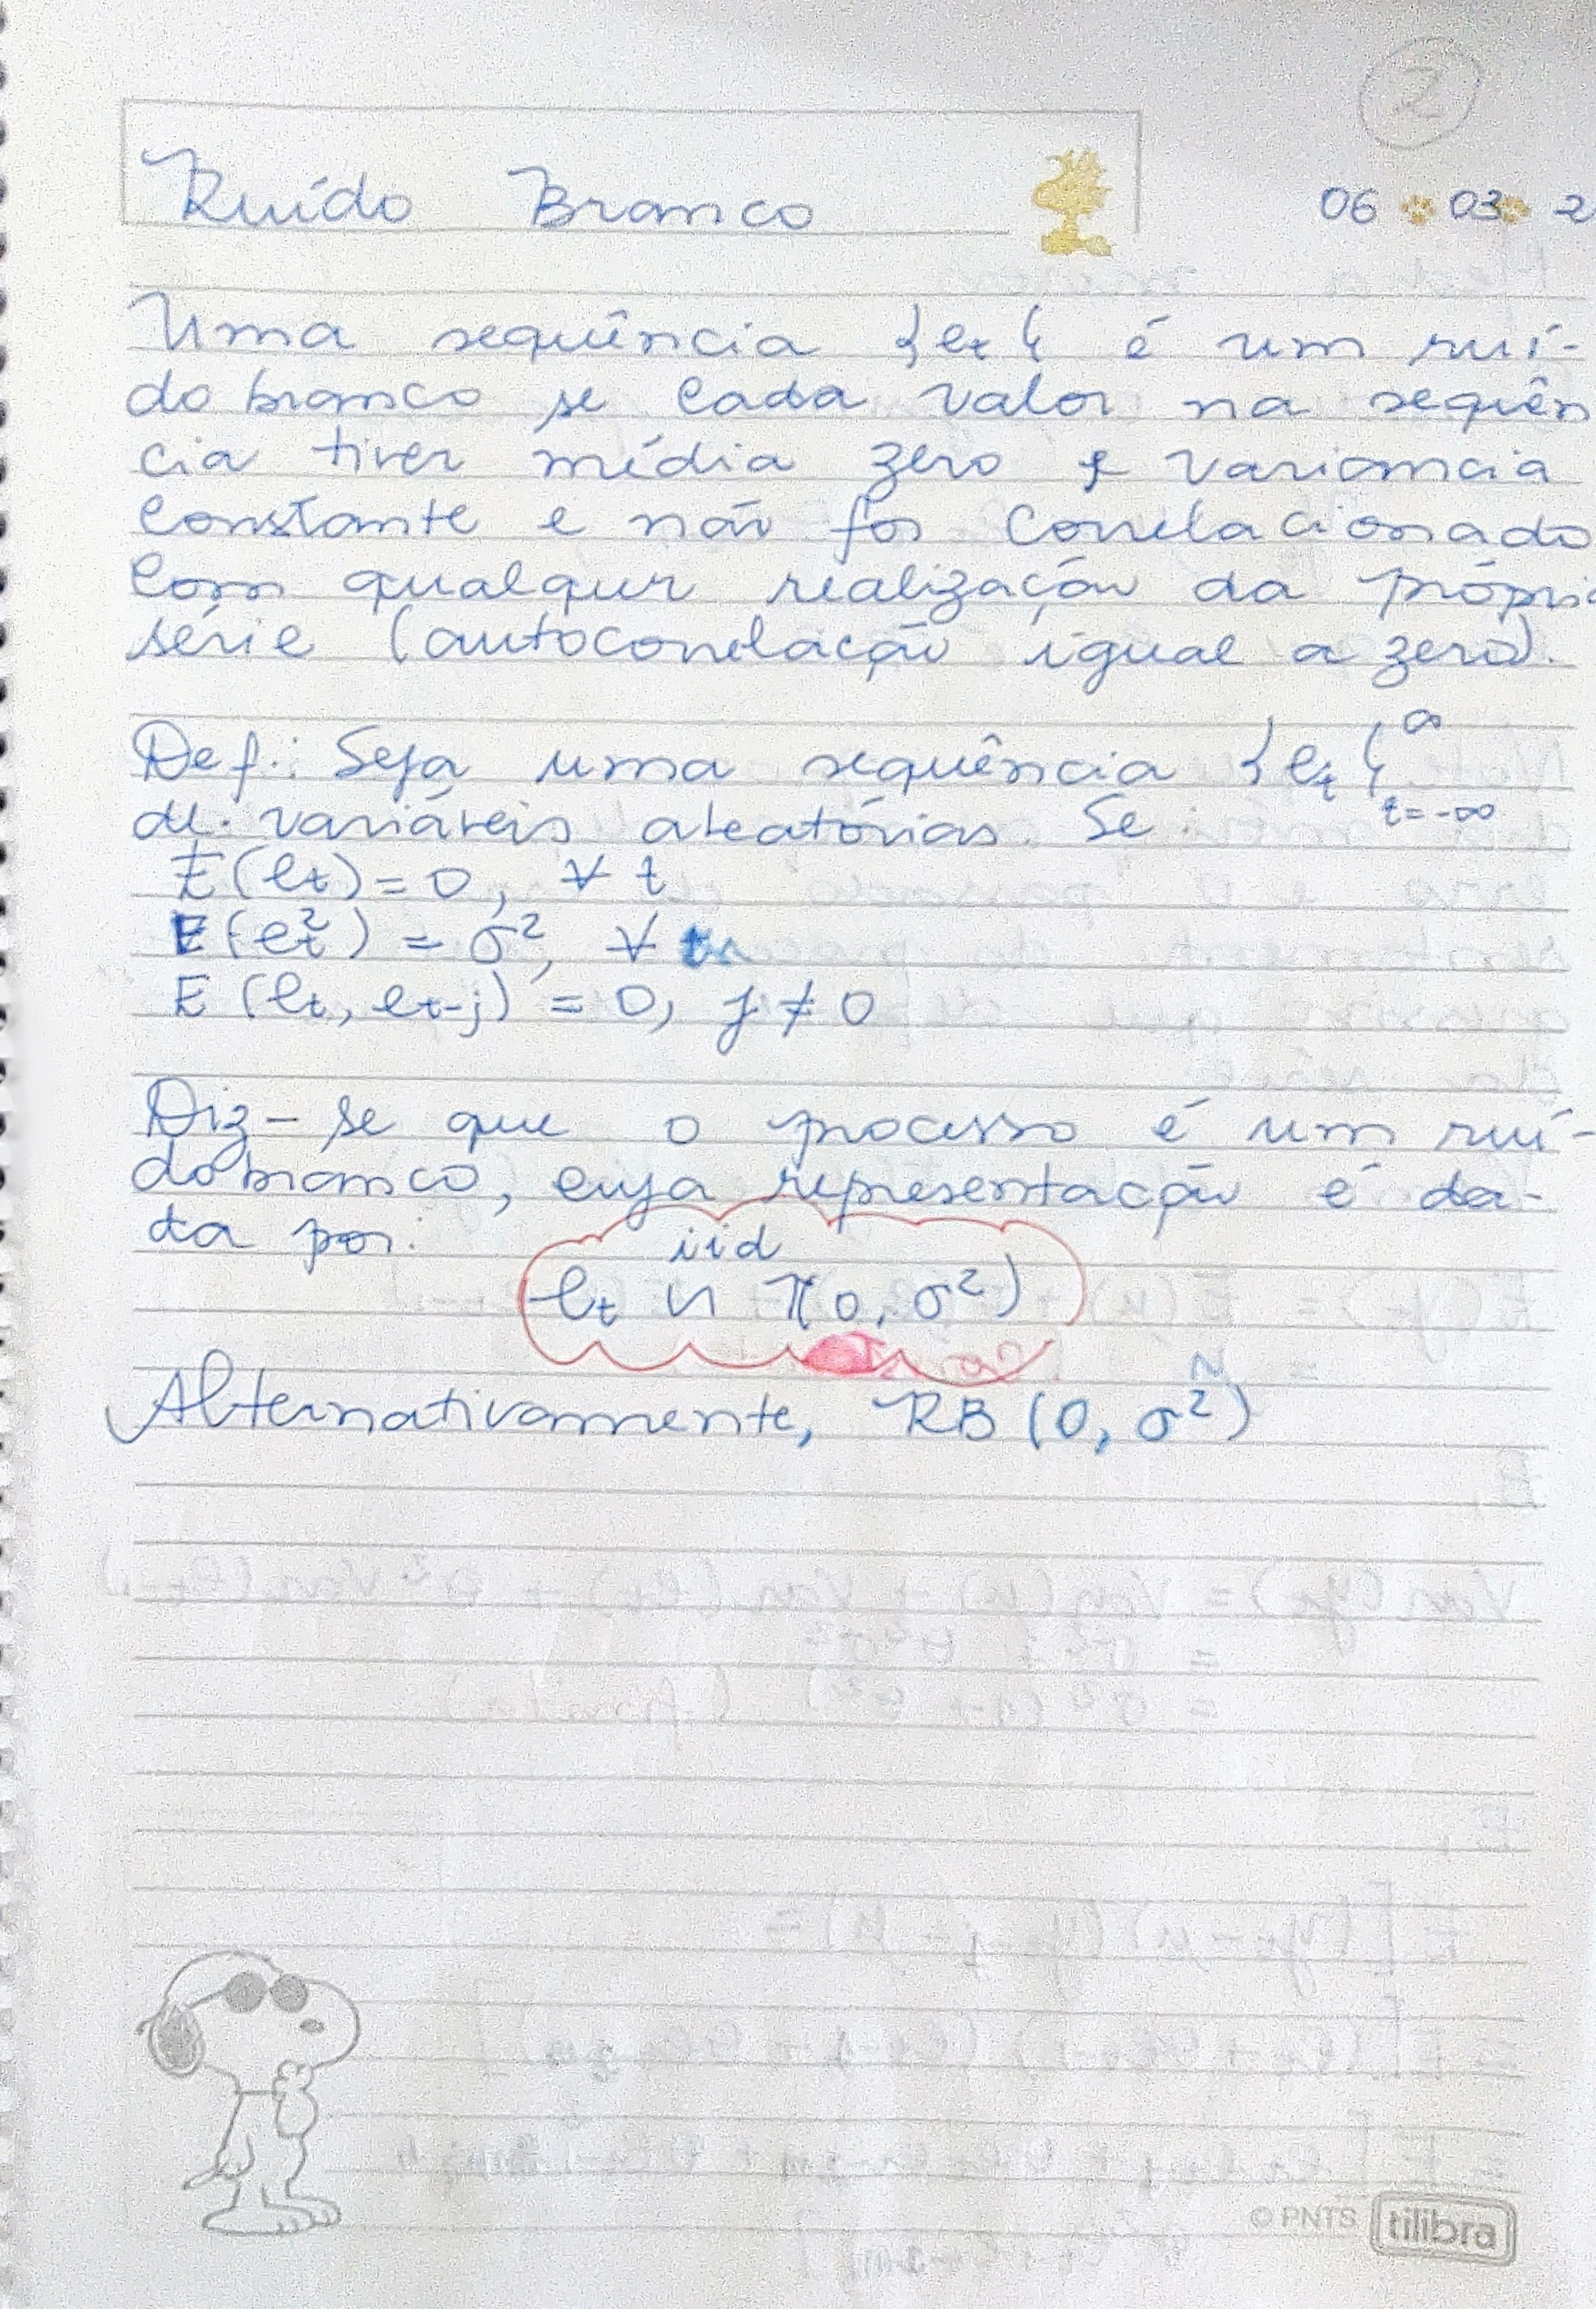 2
Ruído Branco
06 03 2
Uma sequência {et} é um ruí-
do branco se cada valor na sequên
cia tiver média zero e variancia
constante e não for correlacionado
com qualquer realização da própria
série (autocorrelação igual a zero).
Def.: Seja uma sequência {et}∞t=-∞
de variáveis aleatórias. Se
E(et) = 0, ∀ t
E(et²) = σ², ∀ t
E(et, et-j) = 0, j ≠ 0
Diz-se que o processo é um ruí-
do branco, cuja representação é da-
da por:
iid
et ~ (0, σ²)
Alternativamente, RB (0, σ²)
© PNTS tilibra